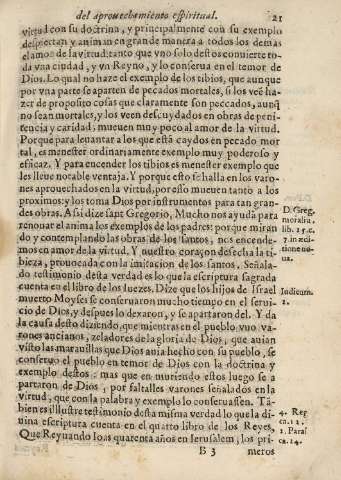 del aprouechamiento eſpiritual. 21
virtud con ſu doctrina, y principalmente con ſu exemplo
deſpiertan y animan en grande manera a todos los demas
el amor de la virtud: tanto que vno ſolo deſtos conuierte to
da vna ciudad, y vn Reyno, y lo conſerua en el temor de
Dios. Lo qual no haze el exemplo de los tibios, que aunque
por vna parte ſe aparten de pecados mortales, ſi los veẽ ha-
zer de propoſito coſas que claramente ſon peccados, aunq̃
no ſean mortales, y los veen deſcuydados en obras de peni-
tencia y caridad, mueuen muy poco al amor de la virtud.
Porque para leuantar a los que eſtà caydos en pecado mor
tal, es meneſter ordinariamente exemplo muy poderoso y
eficaz. Y para encender los tibios es meneſter exemplo que
les lleue notable ventaja. Y porque eſto ſe halla en los varo-
nes aprouechados en la virtud, por eſſo mueuen tanto a los
proximos: y los toma Dios por inſtrumento para tan gran-
des obras. Aſsi dize ſant Gregorio, Mucho nos ayuda para
renouar el anima los exemplos de los padres: porque miran
do y contemplando las obras de los ſantos, nos encende-
mos en amor de la virtud. Y nueſtro coraçon deſecha la ti-
bieza, prouocada con la imitacion de los ſantos. Señala-
do teſtimonio deſta verdad es lo que la eſcriptura ſagrada
cuenta en el libro de los Iuezes. Dize que los hijos de Iſrael
muerto Moyſes ſe conſeruaron mucho tiempo en el ſerui-
cio de Dios, y deſpues lo dexaron, y ſe apartaron del. Y da
la cauſa deſto diziendo, que mientras en el pueblo vuo va-
rones ancianos, zeladores de la gloria de Dios, que auian
viſto las marauillas que Dios auia hecho con ſu pueblo, ſe
conſeruo el pueblo en temor de Dios con la doctrina y
exemplo deſtos: mas que en muriendo eſtos luego ſe a
partaron de Dios, por faltalles varones señalados en la
virtud, que con la palabra y exemplo lo conſeruaſſen. Tã
bien es illuſtre teſtimonio deſta miſma verdad lo que la di-
uina eſcriptura cuenta en el quarto libro de los Reyes,
Que Reynando Ioas quarenta años en Ieruſalem, los pri-
B 3 meros
D. Greg.
moraliũ.
lib. 25. c.
7 in ædi
tione no-
ua.
Iudicum.
2.
4. Reg
ca. 12.
2. Paral
ca. 24.